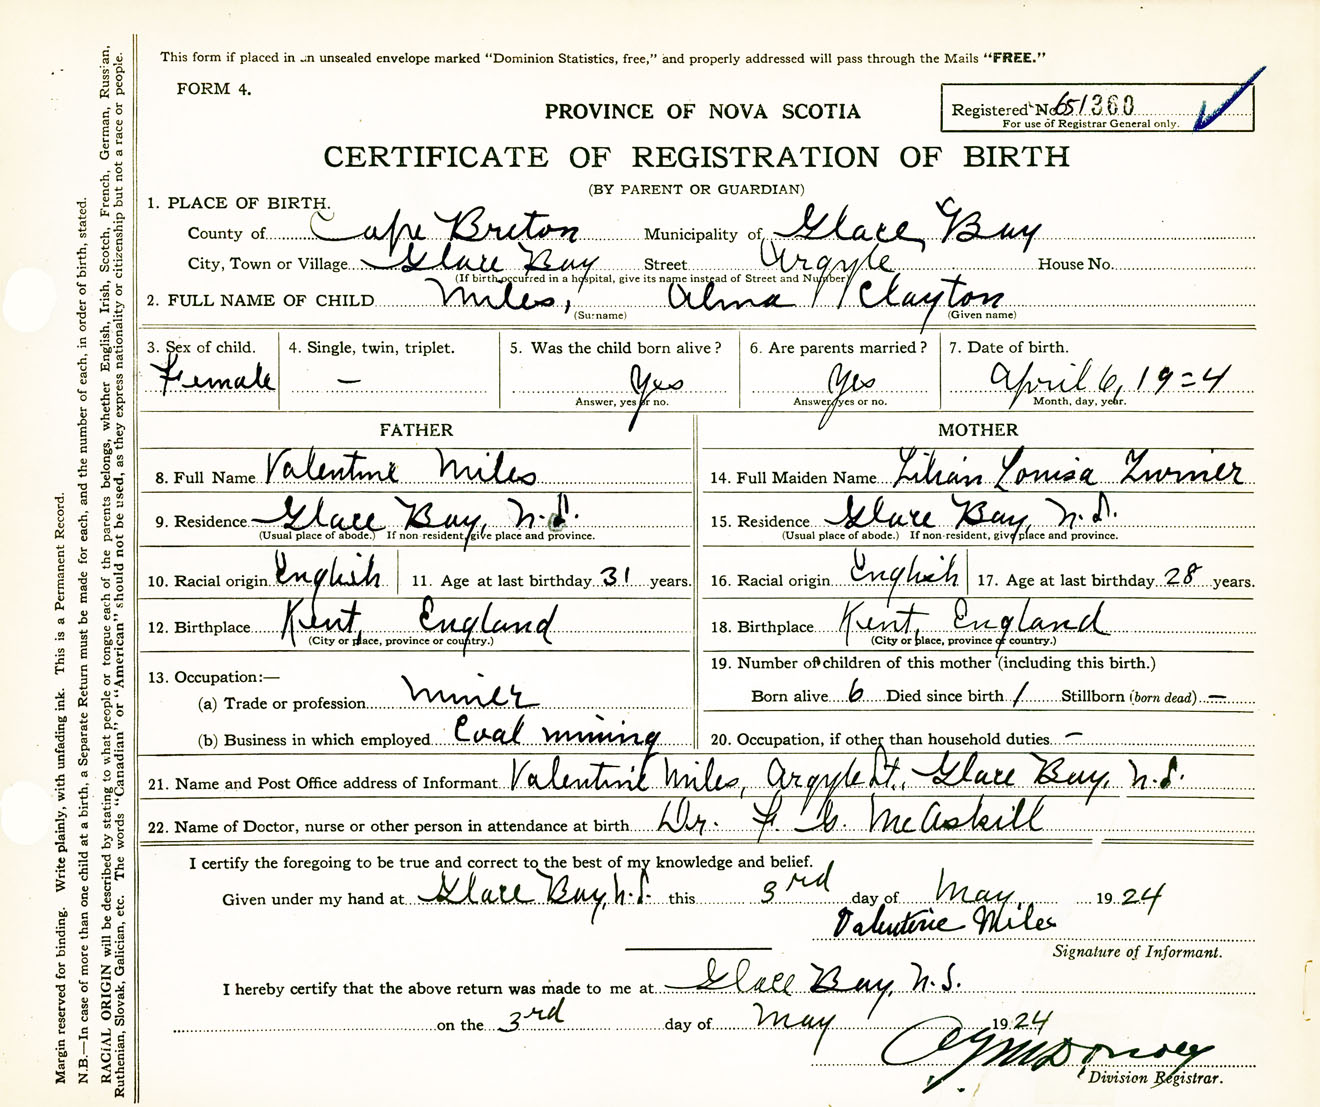 This form if placed in an unsealed envelope marked "Dominion Statistics, free," and properly addressed will pass through the Mails "FREE."
FORM 4.
PROVINCE OF NOVA SCOTIA
Registered No. 651360
For use of Registrar General only.
CERTIFICATE OF REGISTRATION OF BIRTH
(BY PARENT OR GUARDIAN)
1. PLACE OF BIRTH.
County of Cape Breton Municipality of Glace Bay
City, Town or Village Glace Bay Street Argyle House No.
(If birth occurred in a hospital, give its name instead of Street and Number)
2. FULL NAME OF CHILD Miles, Alma Clayton
(Surname) (Given name)
3. Sex of child. 4. Single, twin, triplet. 5. Was the child born alive? 6. Are parents married? 7. Date of birth.
Female — Yes Yes April 6, 1924
Answer, yes or no. Answer, yes or no. Month, day, year.
FATHER MOTHER
8. Full Name Valentine Miles 14. Full Maiden Name Lilian Louisa Turner
9. Residence Glace Bay, N.S. 15. Residence Glace Bay, N.S.
(Usual place of abode.) If non-resident, give place and province. (Usual place of abode.) If non-resident, give place and province.
10. Racial origin English 11. Age at last birthday 31 years. 16. Racial origin English 17. Age at last birthday 28 years.
12. Birthplace Kent, England 18. Birthplace Kent, England
(City or place, province or country.) (City or place, province or country.)
13. Occupation:— 19. Number of children of this mother (including this birth.)
(a) Trade or profession Miner Born alive 6 Died since birth 1 Stillborn (born dead) —
(b) Business in which employed Coal mining 20. Occupation, if other than household duties —
21. Name and Post Office address of Informant Valentine Miles, Argyle St., Glace Bay, N.S.
22. Name of Doctor, nurse or other person in attendance at birth Dr. McAskill
I certify the foregoing to be true and correct to the best of my knowledge and belief.
Given under my hand at Glace Bay, N.S. this 3rd day of May 1924
Valentine Miles
Signature of Informant.
I hereby certify that the above return was made to me at Glace Bay, N.S.
on the 3rd day of May 1924
Division Registrar.
Margin reserved for binding. Write plainly, with unfading ink. This is a Permanent Record.
N.B.—In case of more than one child at a birth, a Separate Return must be made for each, and the number of each, in order of birth, stated.
RACIAL ORIGIN will be described by stating to what people or tongue each of the parents belongs, whether English, Irish, Scotch, French, German, Russian,
Ruthenian, Slovak, Galician, etc. The words "Canadian" or "American" should not be used, as they express nationality or citizenship but not a race or people.